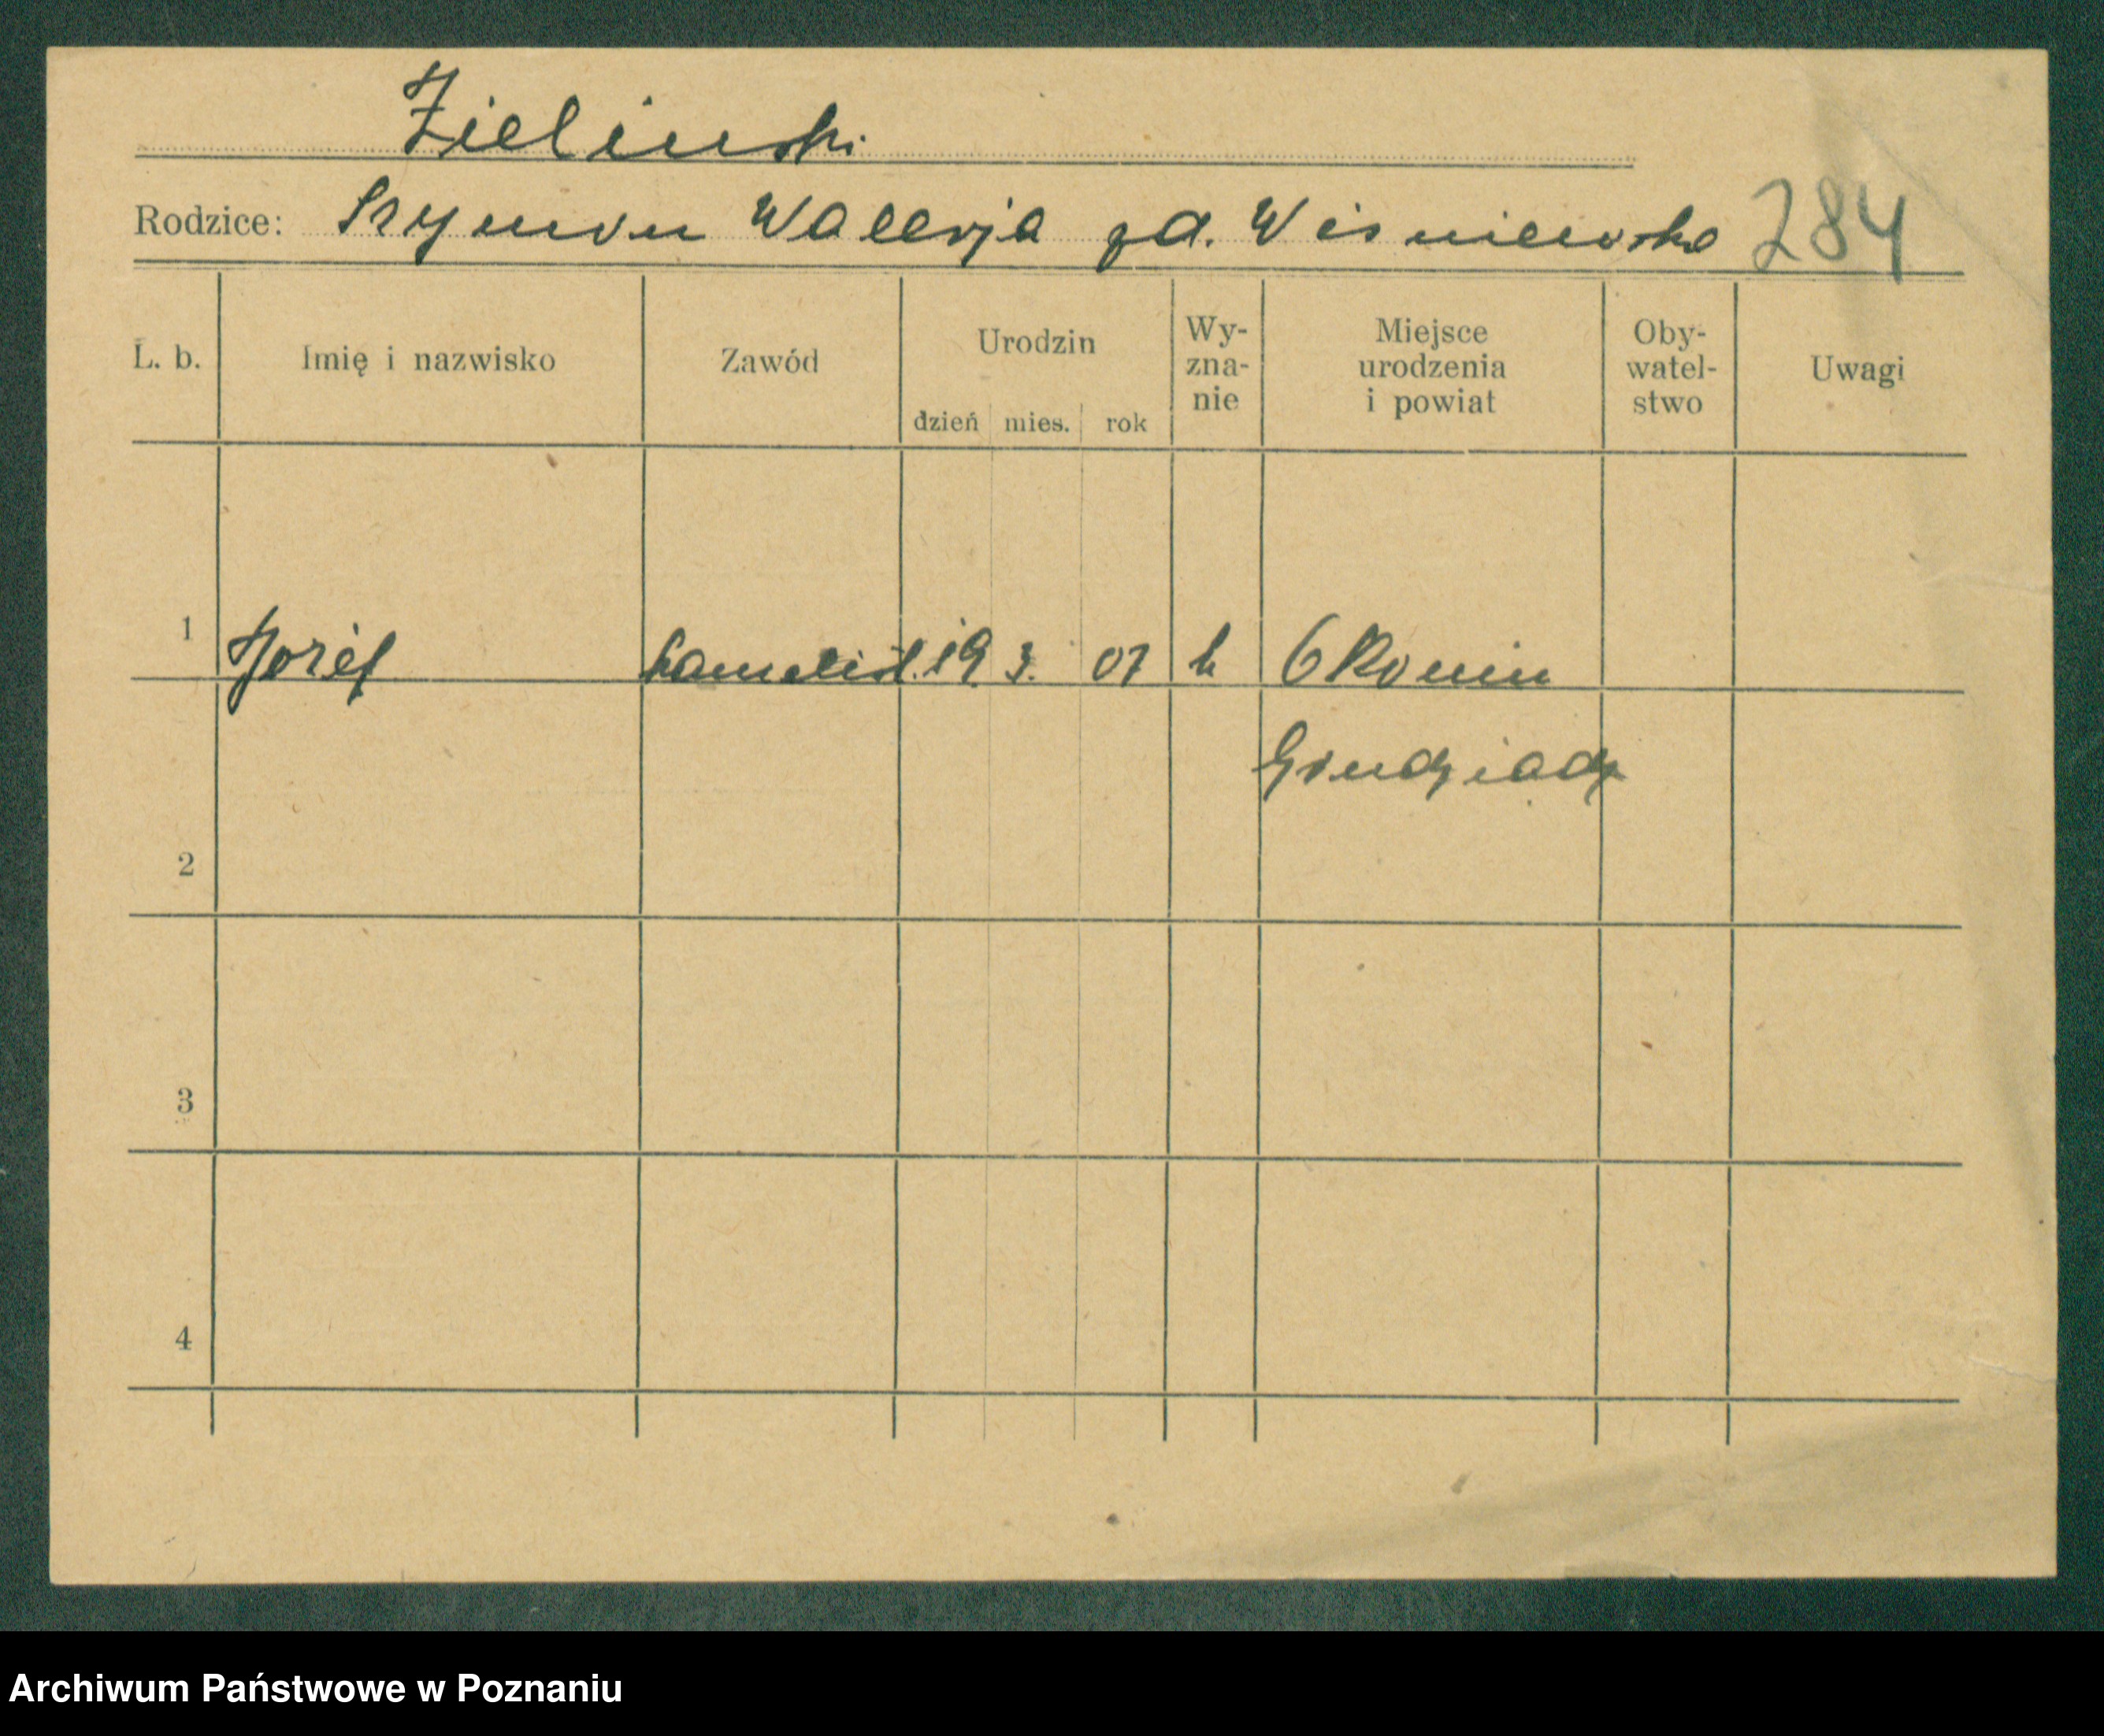 Zielinski
Rodzice: Szymon Walerja zd. Wisniewska 284
L. b. Imię i nazwisko Zawód Urodzin dzień mies. rok Wy-zna-nie Miejsce urodzenia i powiat Oby-watel-stwo Uwagi
1 Józef 19. 3. 07 k Okonin
Grudziadz
2
3
4
Archiwum Państwowe w Poznaniu